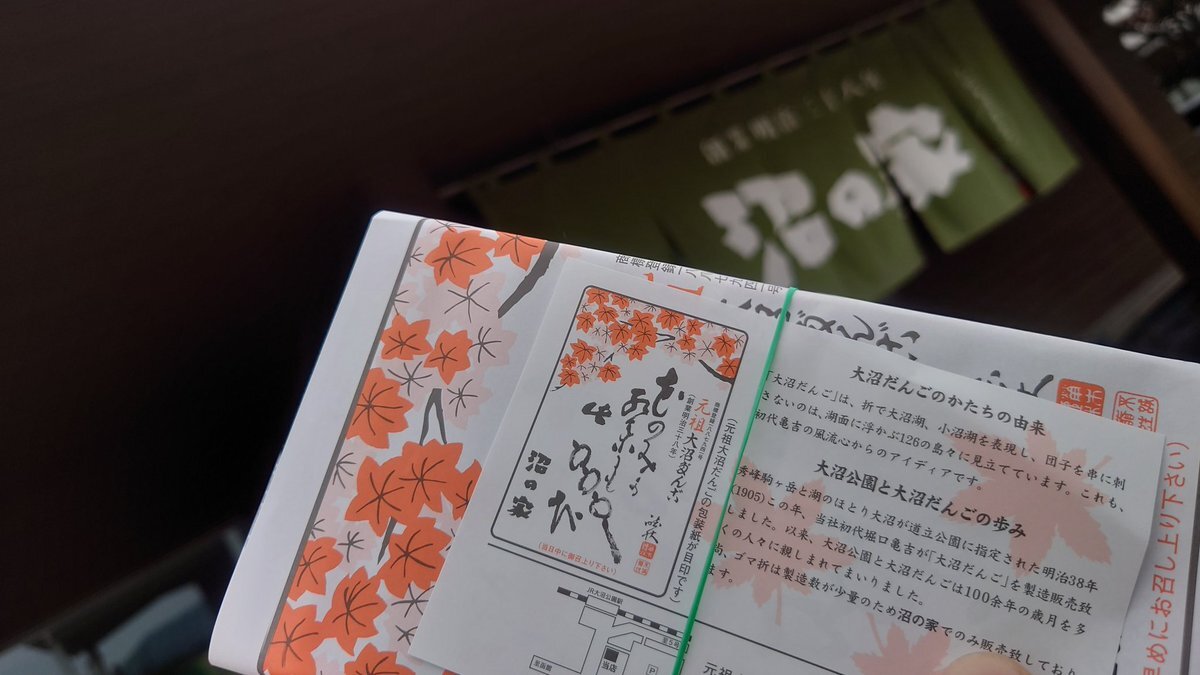 創業明治三十八年
沼の家
商標登録一八八七九四一号
(元祖大沼だんごの包装紙が目印です)
元祖大沼だんご
(創業明治三十八年)
沼の家
(当日中に御召上り下さい)
JR大沼公園駅
当店
P
大沼だんごのかたちの由来
「大沼だんご」は、折で大沼湖、小沼湖を表現し、団子を串に刺
さないのは、湖面に浮かぶ126の島々に見立てています。これも、
初代亀吉の風流心からのアイディアです。
大沼公園と大沼だんごの歩み
秀峰駒ヶ岳と湖のほとり大沼が道立公園に指定された明治38年
(1905)この年、当社初代堀口亀吉が「大沼だんご」を製造販売致
しました。以来、大沼公園と大沼だんごは100余年の歳月を多
くの人々に親しまれてまいりました。
尚、ゴマ折は製造数が少量のため沼の家でのみ販売致しており
ます。
早めにお召し上り下さい)
元祖